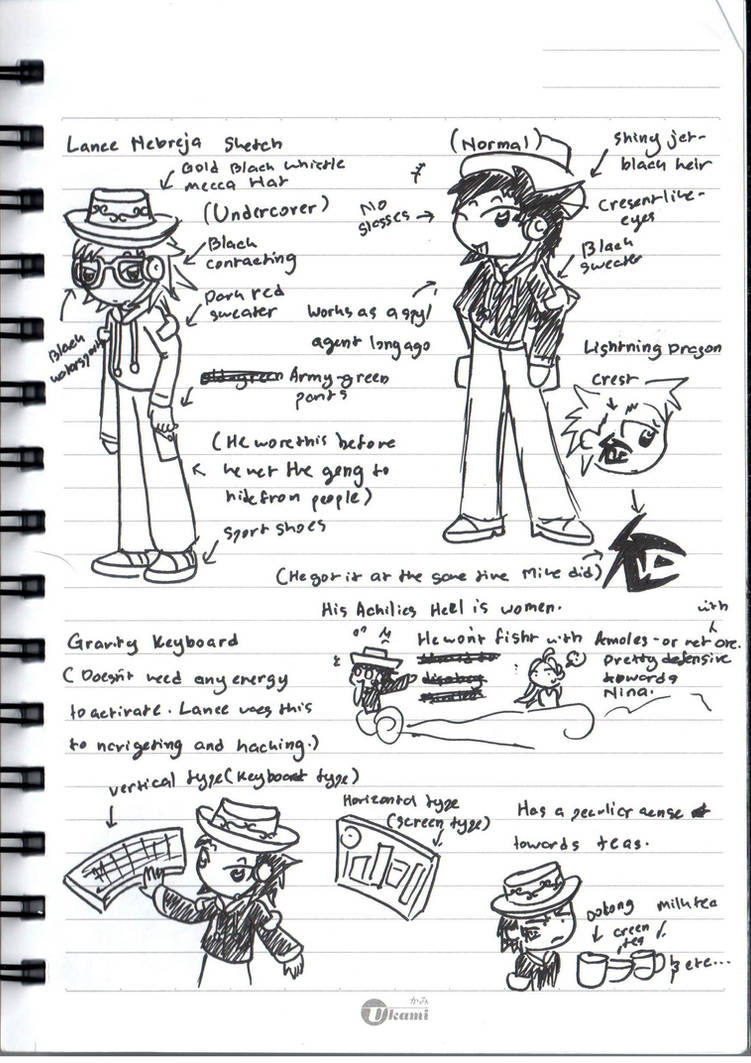 Lance Nebreja Sketch
Gold Black Whistle
Mecca Hat
(Undercover)
Black
contracting
Dark red
sweater
Black
Army-green
pants
(He wore this before
he met the gang to
hide from people)
Sport shoes
(Normal)
Shiny jet-
black heir
Cresent like-
eyes
No
glasses
Black
sweater
Works as a spy/
agent long ago
Lightning Dragon
Crest
(He got it at the same time Mike did)
His Achilies Heel is women.
He won't fight with
with
or not one.
pretty defensive
towards
Nina.
Gravity Keyboard
(Doesn't need any energy
to activate. Lance uses this
to navigeting and hacking.)
vertical type (Keyboard type)
Horizontal type
(screen type)
Has a peculier sense
towards teas.
Oolong
milk tea
Green
tea
here...
かみ
Ukami